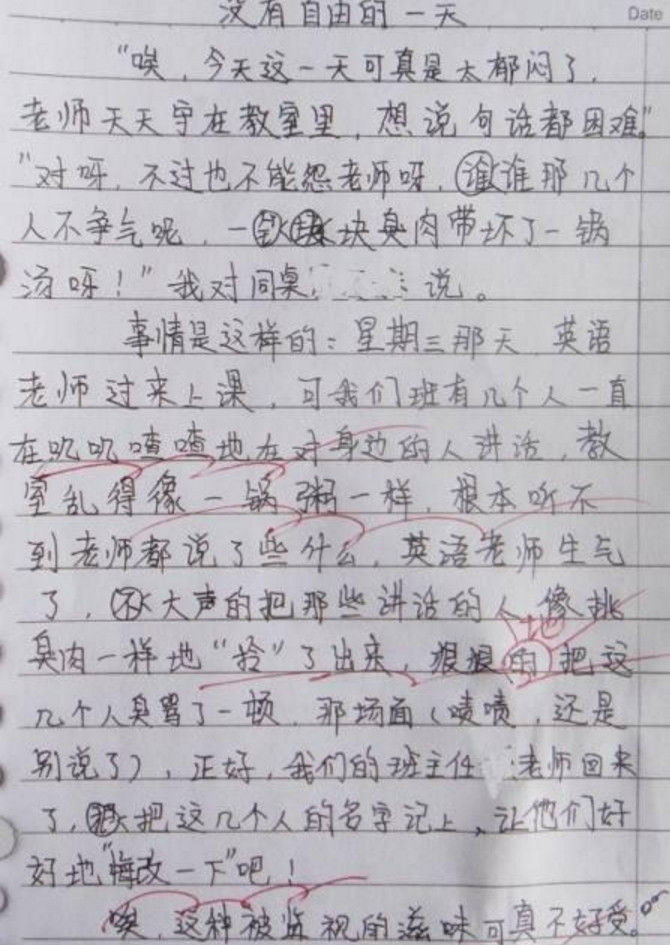 没有自由的一天
Date
“唉，今天这一天可真是太郁闷了，
老师天天守在教室里，想说句话都困难”
“对呀，不过也不能怨老师呀，谁谁那几个
人不争气呢，一块臭肉带坏了一锅
汤呀！”我对同桌 说。
事情是这样的：星期三那天，英语
老师过来上课，可我们班有几个人一直
在叽叽喳喳地在对身边的人讲话，教
室乱得像一锅粥一样，根本听不
到老师都说了些什么，英语老师生气
了，大声的把那些讲话的人像挑
臭肉一样地“拎”了出来，狠狠的把这
地
几个人臭骂了一顿，那场面（啧啧，还是
别说了），正好，我们的班主任 老师回来
了，把这几个人的名字记上，让他们好
好地“悔改一下”吧！
唉，这种被监视的滋味可真不好受。